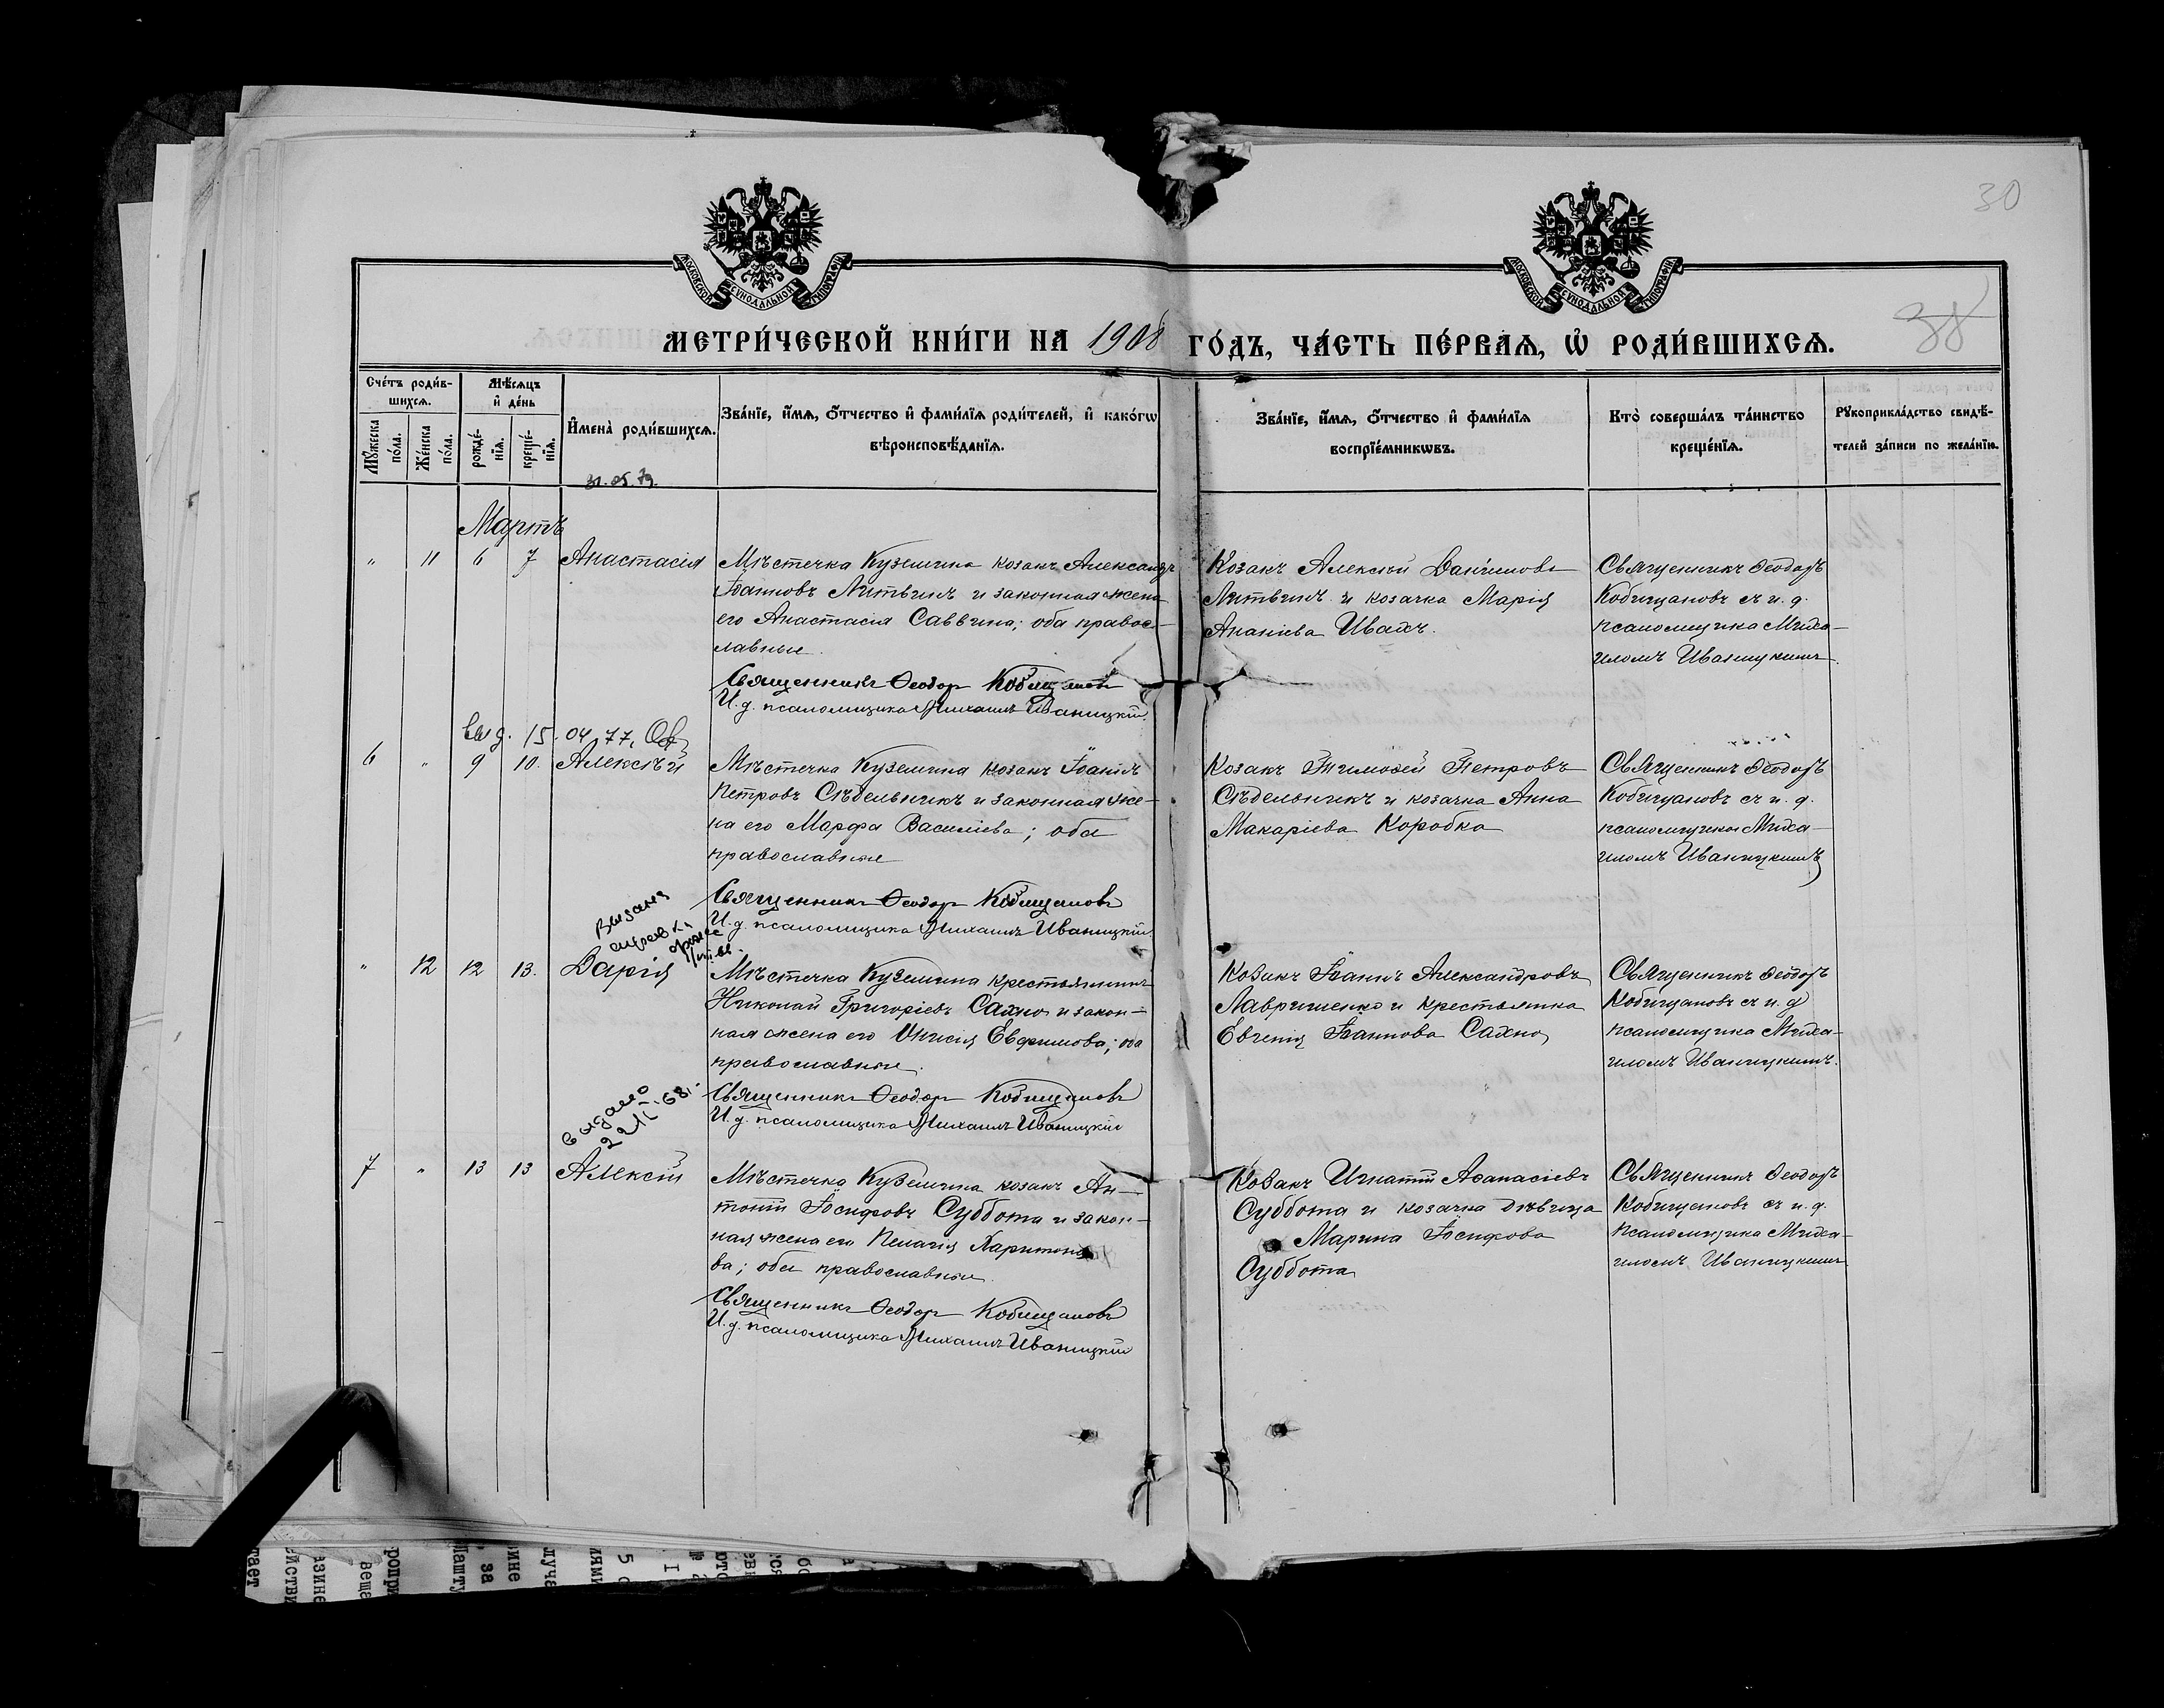 30
МОСКОВСКОЙ СѴНОДАЛЬНОЙ ТИПОГРАФІИ
МОСКОВСКОЙ СѴНОДАЛЬНОЙ ТИПОГРАФІИ
МЕТРИ́ЧЕСКОЙ КНИ́ГИ НА 1908 ГО́ДЪ, ЧА́СТЬ ПЕ́РВАѦ, Ѡ҆ РОДИ́ВШИХСѦ.
38
Сче́тъ роди́в-
шихсѧ.
Мꙋ́жеска по́ла.
Же́нска по́ла.
Мѣ́сѧцъ
и҆ де́нь
рожде́-нїѧ.
креще́-нїѧ.
И҆мена̀ роди́вшихсѧ.
Зва́нїе, и҆́мѧ, ѻ҆́тчество и҆ фами́лїѧ роди́телей, и҆ како́гѡ
вѣроисповѣ́данїѧ.
Зва́нїе, и҆́мѧ, ѻ҆́тчество и҆ фами́лїѧ
воспрїе́мникѡвъ.
Кто̀ соверша́лъ та́инство
креще́нїѧ.
Рꙋкоприкла́дство свидѣ́-
телей за́писи по жела́нїю.
31.05.79.
Мартъ
" 11 6 7 Анастасія
Мѣстечка Куземина козакъ Александръ
Іоанновъ Литвинъ и законная жена
его Анастасія Саввина; оба правос-
лавные.
Священникъ Ѳеодоръ Кобищановъ
И. д. псаломщика Михаилъ Иваницкій.
Козакъ Алексѣй Даніиловъ
Литвинъ и козачка Марія
Ананіева Ивахъ.
Священникъ Ѳеодоръ
Кобищановъ съ и. д.
псаломщика Миха-
иломъ Иваницкимъ.
выд. 15.04.77.
6 " 9 10. Алексѣй
Мѣстечка Куземина козакъ Іоаннъ
Петровъ Сѣдельникъ и законная же-
на его Марфа Василіева; оба
православные
Священникъ Ѳеодоръ Кобищановъ
И. д. псаломщика Михаилъ Иваницкій.
Козакъ Тимоѳей Петровъ
Сѣдельникъ и козачка Анна
Макаріева Коробка
Священникъ Ѳеодоръ
Кобищановъ съ и. д.
псаломщика Миха-
иломъ Иваницкимъ
Выдана
справка
" 12 12 13. Дарія
Мѣстечка Куземина крестьянинъ
Николай Григоріевъ Сахно и закон-
ная жена его Ѳкисія Евфимова; оба
православные.
Священникъ Ѳеодоръ Кобищановъ
И. д. псаломщика Михаилъ Иваницкій
Козакъ Іоаннъ Александровъ
Лавриненко и крестьянка
Евгенія Іоаннова Сахно
Священникъ Ѳеодоръ
Кобищановъ съ и. д
псаломщика Миха-
иломъ Иваницкимъ.
выдано
7 " 13 13 Алексій
Мѣстечка Куземина козакъ Ан-
тоній Іосифовъ Суббота и закон-
ная жена его Пелагія Харитоно
ва; оба православные.
Священникъ Ѳеодоръ Кобищановъ
И. д. псаломщика Михаилъ Иваницкій
Козакъ Игнатій Аѳанасіевъ
Суббота и козачка дѣвица
Марина Іосифова
Суббота
Священникъ Ѳеодоръ
Кобищановъ съ и. д.
псаломщика Миха-
иломъ Иваницкимъ